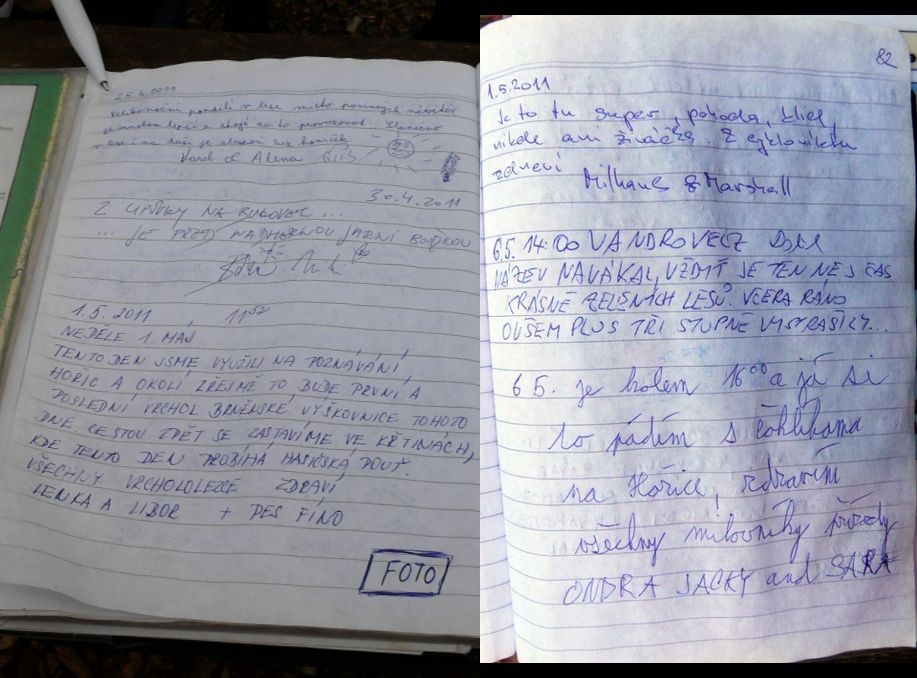 25.4.2011
Velikonoční pondělí v lese místo povinných
Karel a Alena
30.4.2011
Z LIPŮVKY NA BUKOVEC ...
... JE PŘED NÁDHERNOU JARNÍ BOUŘKOU
1.5.2011 11⁵²
NEDĚLE 1. MÁJ
TENTO DEN JSME VYUŽILI NA POZNÁVÁNÍ
HOŘIC A OKOLÍ. ZŘEJMĚ TO BUDE PRVNÍ A
POSLEDNÍ VRCHOL BRNĚNSKÉ VÝŠKOVNICE TOHOTO
DNE. CESTOU ZPĚT SE ZASTAVÍME VE KŘTINÁCH,
KDE TENTO DEN PROBÍHÁ HASIČSKÁ POUŤ.
VŠECHNY VRCHOLOLEZCE ZDRAVÍ
LENKA A LIBOR + PES FÍNO
FOTO
82
1.5.2011
Je to tu super, pohoda, klid,
nikde ani živáčka. Z cyklovýletu
zdraví
Milhaus & Marshall
6.5. 14:00 VANDROVECZ
NÁZEV NAVÁKAL, VŽDYŤ JE TEN NEJ ČAS
KRÁSNĚ ZELENÝCH LESŮ. VČERA RÁNO
OVŠEM PLUS TŘI STUPNĚ VYSTRAŠILY...
6 5. je kolem 16⁰⁰ a já si
to pádím s čoklíkama
na Hořice, zdravím
všechny milovníky přírody
ONDRA JACKY and SARA